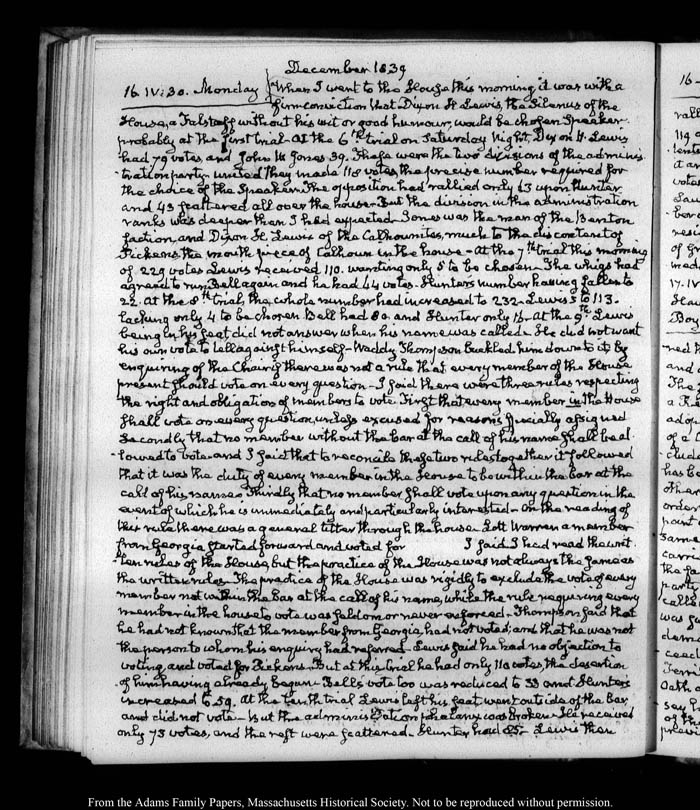 December 1839
16. IV:30. Monday When I went to the House this morning it was with a
firm conviction that Dixon H. Lewis, the Silenus of the
House, a Falstaff without his wit or good humour, would be chosen Speaker
probably at the first trial - At the 6th trial on Saturday Night, Dixon H. Lewis
had 79 votes, and John W. Jones 39. These were the two divisions of the adminis-
-tration party - united they made 118 votes the precise number required for
the choice of the Speaker. The opposition had rallied only 63 upon Hunter
and 43 scattered all over the house - But the division in the administration
ranks was deeper than I had expected. Jones was the man of the Benton
faction, and Dixon H. Lewis of the Calhounites, much to the discontent of
Pickens the mouth piece of Calhoun in the house - At the 7th trial this morning
of 229 votes Lewis received 110. wanting only 5 to be chosen - The whigs had
agreed to run Bell again and he had 64 votes. Hunters number having fallen to
22. at the 8th trial the whole number had increased to 232 - Lewis's to 113.
lacking only 4 to be chosen Bell had 80 and Hunter only 16. At the 9th Lewis
being in his seat did not answer when his name was called - He did not want
his own vote to tell against himself - Waddy Thompson buckled him down to it, by
enquiring of the Chair if there was not a rule that every member of the House
present should vote on every question - I said there were three rules respecting
the right and obligation of members to vote. First that every member in the House
shall vote on every question, unless excused for reasons specially assigned
Secondly that no member without the bar at the call of his name shall be al-
-lowed to vote - and I said that to reconcile these two rules together it followed
that it was the duty of every member in the House to be within the bar at the
call of his names. Thirdly that no member shall vote upon any question in the
event of which he is immediately and particularly interested - On the reading of
this rule there was a general titter through the house. Lott Warren a member
from Georgia started forward and voted for I said I had read the writ-
-ten rules of the House, but the practice of the House was not always the same as
the written rules. The practice of the House was rigidly to exclude the vote of every
member not within the bar at the call of his name, while the rule requiring every
member in the house to vote was seldom or never enforced - Thompson said that
he had not known that the member from Georgia had not voted; and that he was not
the person to whom his enquiry had referred - Lewis said he had no objection to
voting, and voted for Pickens. But at this trial he had only 110 votes, the desertion
of him having already begun. Bells vote too was reduced to 33 and Hunters
increased to 59. At the tenth trial Lewis left his seat went outside of the bar,
and did not vote - But the administration phalanx was broken - He received
only 73 votes, and the rest were scattered - Hunter had 85 - Lewis then
16
From the Adams Family Papers, Massachusetts Historical Society. Not to be reproduced without permission.